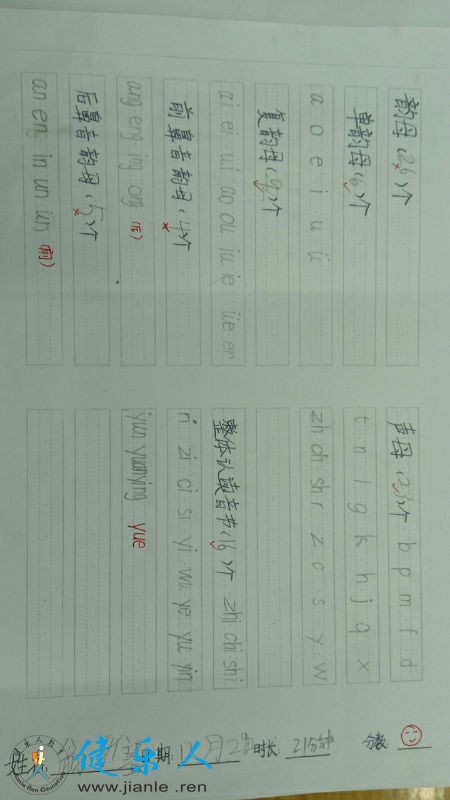 韵母(26)个
单韵母(6)个
a o e i u ü
复韵母(9)个
ai ei ui ao ou iu ie üe er
前鼻音韵母(4)个
ang eng ing ong (后)
后鼻音韵母(5)个
an en in un ün (前)
声母(23)个 b p m f d
t n l g k h j q x
zh ch sh r z c s y w
整体认读音节(16)个 zhi chi shi
ri zi ci si yi wu ye yu yin
yun yuan ying yue
期: 月2 时长: 21分钟 分数:
健乐人
www.jianle.ren